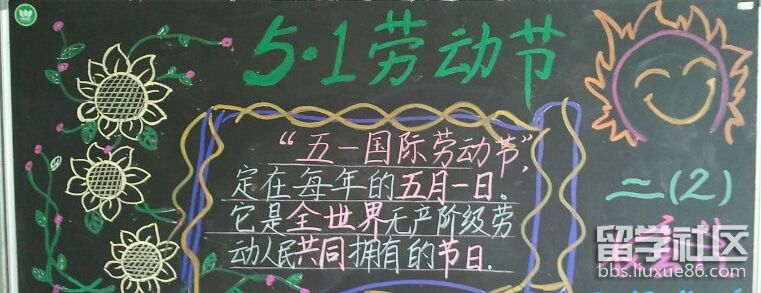 5·1劳动节
“五一国际劳动节”,
定在每年的五月一日。
它是全世界无产阶级劳
动人民共同拥有的节日.
二(2)
留学社区
bbs.liuxue86.com